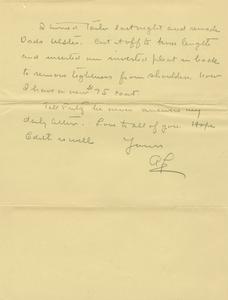 I turned Tailor last night and made
Dads Ulster. Cut it off to knee length
and inserted an inverted pleat in back
to remove tightness from shoulder. Now
I have a new $75 coat
Tell Fritz he never answers my
daily letter. Love to all of you. Hope
Edith is well
Yours